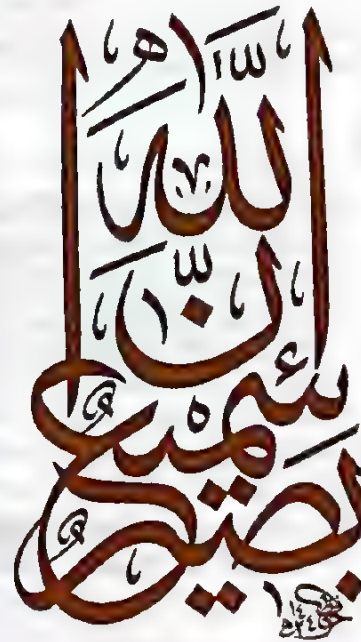 اِنَّ اللّٰهَ
سَمِيعٌ
بَصِيرٌ